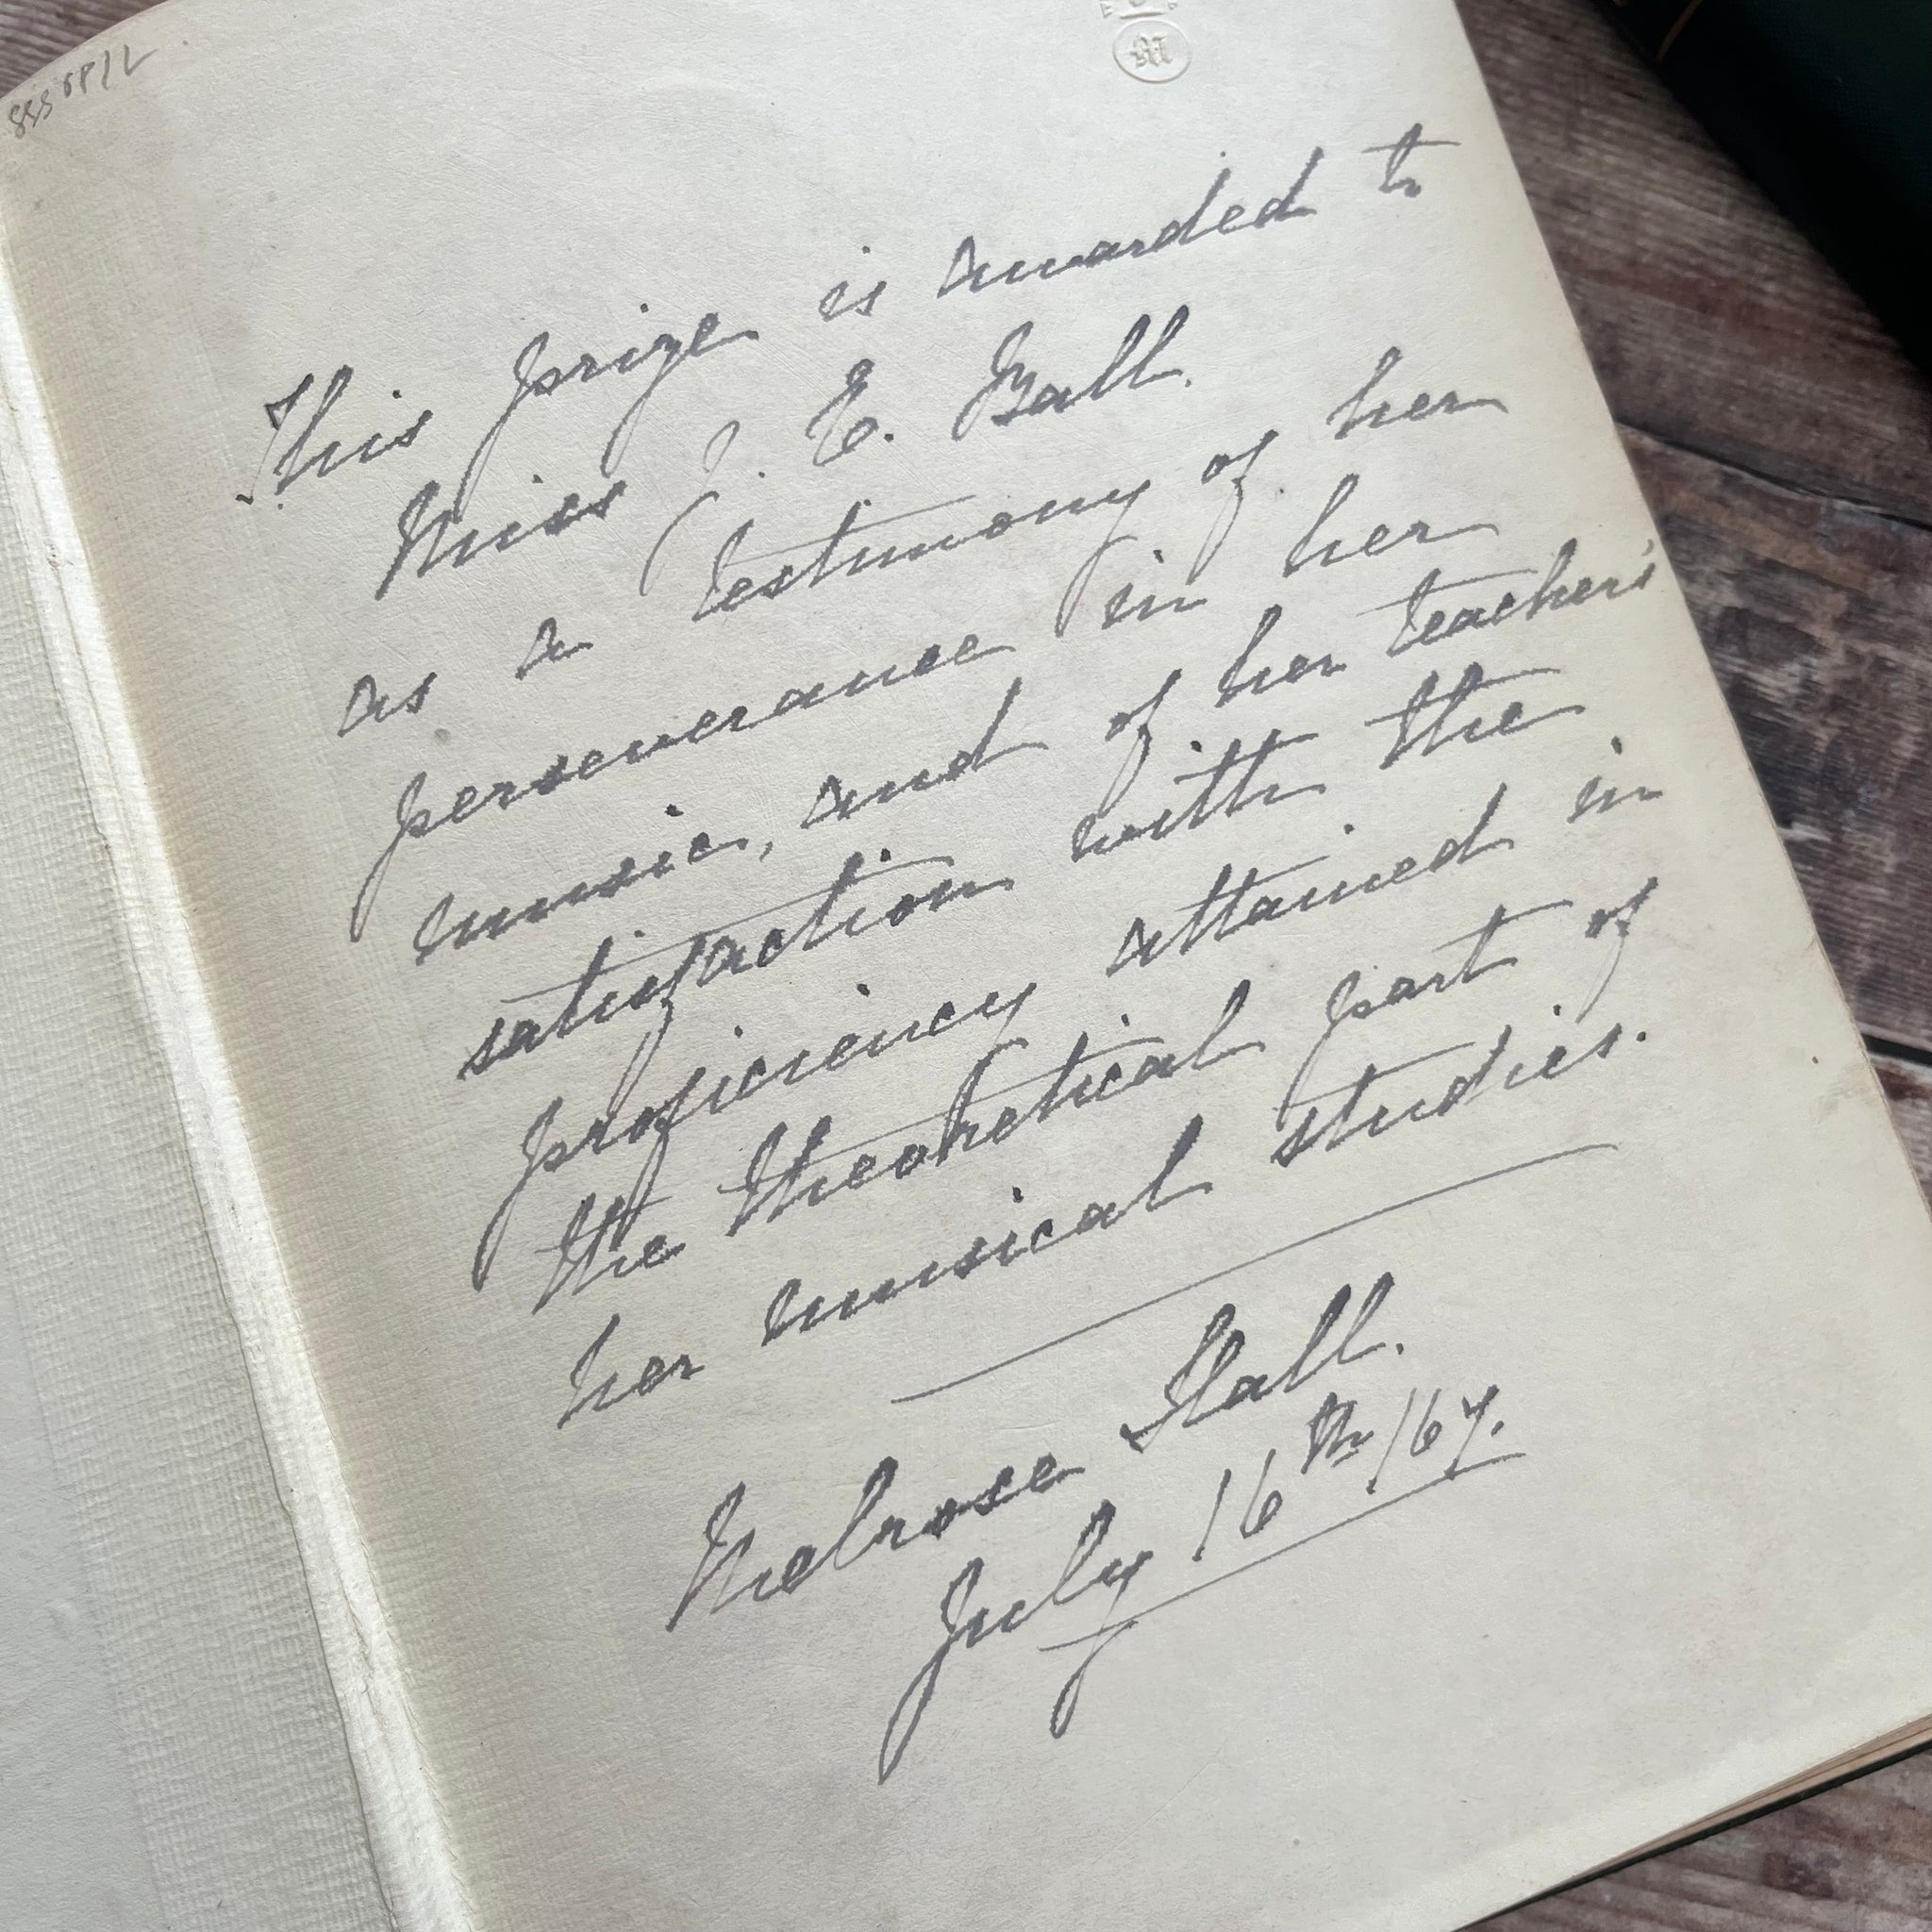 This prize is awarded to
Miss J. E. Ball.
as a testimony of her
perseverance in her
music, and of her teacher's
satisfaction with the
proficiency attained in
the theoretical part of
her musical studies.
Melrose Hall.
July 16th/67.